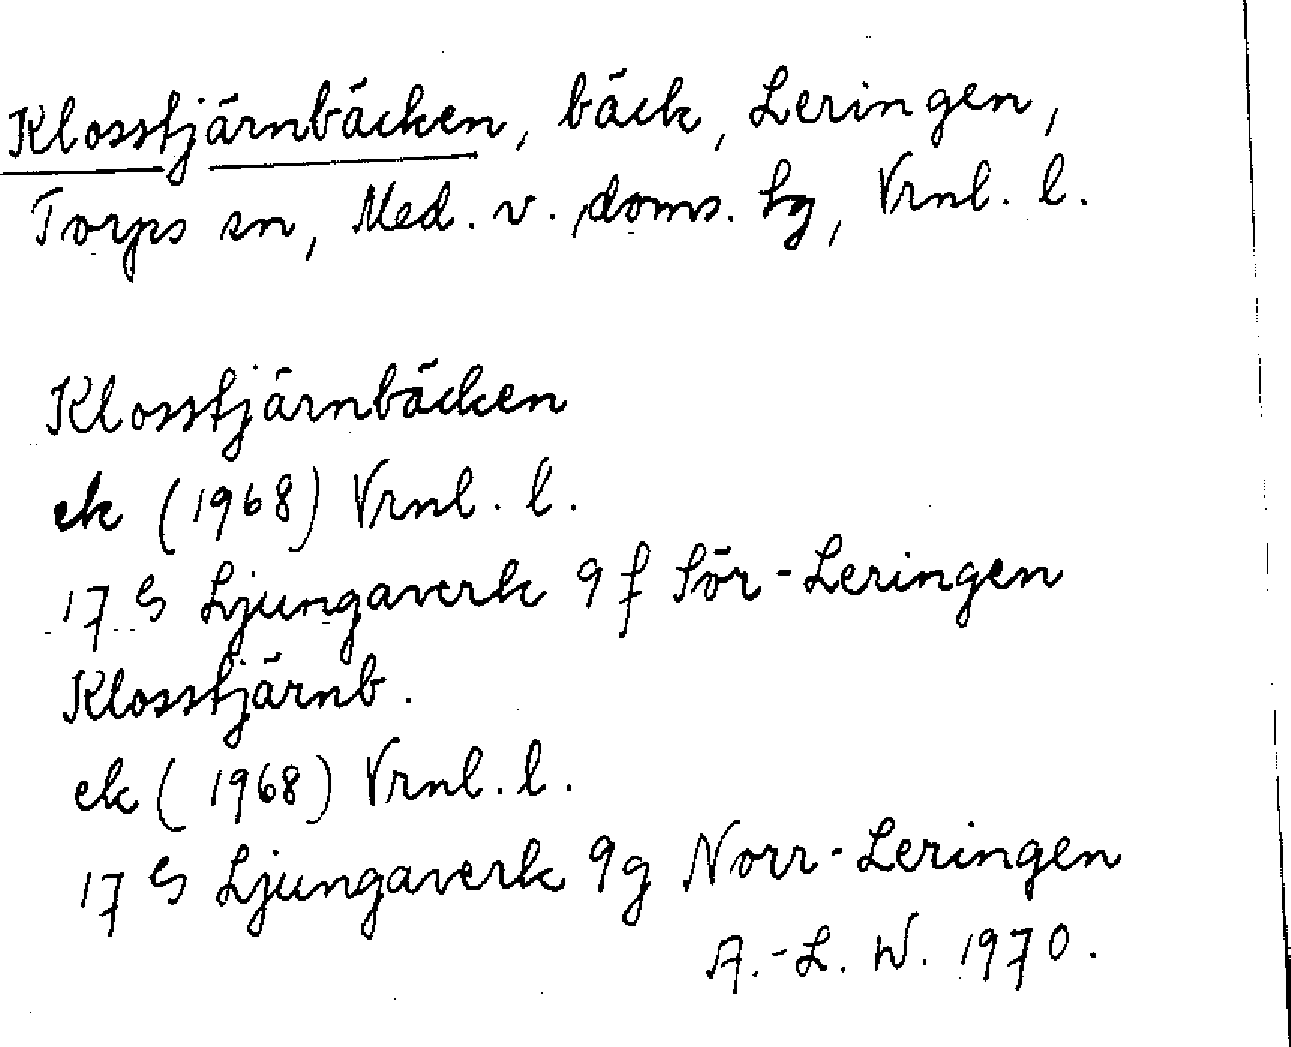 Klosstjärnbäcken, bäck, Leringen,
Torps sn, Med. v. doms. hg, Vrnl. l.
Klosstjärnbäcken
ek (1968) Vrnl. l.
17 G Ljungaverk 9 f Sör-Leringen
Klosstjärnb.
ek (1968) Vrnl. l.
17 G Ljungaverk 9g Norr-Leringen
A.-L. W. 1970.